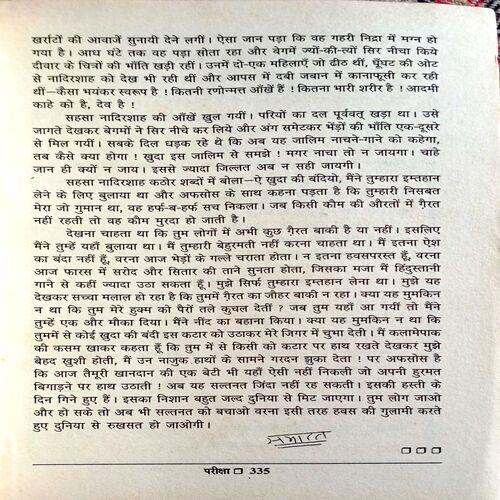 खर्राटों की आवाजें सुनायी देने लगीं। ऐसा जान पड़ा कि वह गहरी निद्रा में मग्न हो
गया है। आध घंटे तक वह पड़ा सोता रहा और बेगमें ज्यों-की-त्यों सिर नीचा किये
दीवार के चित्रों की भाँति खड़ी रहीं। उनमें दो-एक महिलाएँ जो ढीठ थीं, घूँघट की ओट
से नादिरशाह को देख भी रही थीं और आपस में दबी जबान में कानाफूसी कर रही
थीं—कैसा भयंकर स्वरूप है ! कितनी रणोन्मत्त आँखें हैं ! कितना भारी शरीर है ! आदमी
काहे को है, देव है !
सहसा नादिरशाह की आँखें खुल गयीं। परियों का दल पूर्ववत् खड़ा था। उसे
जागते देखकर बेगमों ने सिर नीचे कर लिये और अंग समेटकर भेड़ों की भाँति एक-दूसरे
से मिल गयीं। सबके दिल धड़क रहे थे कि अब यह जालिम नाचने-गाने को कहेगा,
तब कैसे क्या होगा ! खुदा इस जालिम से समझे ! मगर नाचा तो न जायगा। चाहे
जान ही क्यों न जाय। इससे ज्यादा जिल्लत अब न सही जायगी।
सहसा नादिरशाह कठोर शब्दों में बोला—ऐ खुदा की बंदियो, मैंने तुम्हारा इम्तहान
लेने के लिए बुलाया था और अफसोस के साथ कहना पड़ता है कि तुम्हारी निसबत
मेरा जो गुमान था, वह हर्फ-ब-हर्फ सच निकला। जब किसी कौम की औरतों में ग़ैरत
नहीं रहती तो वह कौम मुरदा हो जाती है।
देखना चाहता था कि तुम लोगों में अभी कुछ ग़ैरत बाकी है या नहीं। इसलिए
मैंने तुम्हें यहाँ बुलाया था। मैं तुम्हारी बेहुरमती नहीं करना चाहता था। मैं इतना ऐश
का बंदा नहीं हूँ, वरना आज भेड़ों के गल्ले चराता होता। न इतना हवसपरस्त हूँ, वरना
आज फारस में सरोद और सितार की ताने सुनता होता, जिसका मजा मैं हिंदुस्तानी
गाने से कहीं ज्यादा उठा सकता हूँ। मुझे सिर्फ तुम्हारा इम्तहान लेना था। मुझे यह
देखकर सच्चा मलाल हो रहा है कि तुममें ग़ैरत का जौहर बाकी न रहा। क्या यह मुमकिन
न था कि तुम मेरे हुक्म को पैरों तले कुचल देतीं ? जब तुम यहाँ आ गयीं तो मैंने
तुम्हें एक और मौका दिया। मैंने नींद का बहाना किया। क्या यह मुमकिन न था कि
तुममें से कोई खुदा की बंदी इस कटार को उठाकर मेरे जिगर में चुभा देती। मैं कलामेपाक
की कसम खाकर कहता हूँ कि तुम में से किसी को कटार पर हाथ रखते देखकर मुझे
बेहद खुशी होती, मैं उन नाजुक हाथों के सामने गरदन झुका देता ! पर अफसोस है
कि आज तैमूरी खानदान की एक बेटी भी यहाँ ऐसी नहीं निकली जो अपनी हुरमत
बिगाड़ने पर हाथ उठाती ! अब यह सल्तनत जिंदा नहीं रह सकती। इसकी हस्ती के
दिन गिने हुए हैं। इसका निशान बहुत जल्द दुनिया से मिट जाएगा। तुम लोग जाओ
और हो सके तो अब भी सल्तनत को बचाओ वरना इसी तरह हवस की गुलामी करते
हुए दुनिया से रुखसत हो जाओगी।
समाप्त
परीक्षा ❐ 335